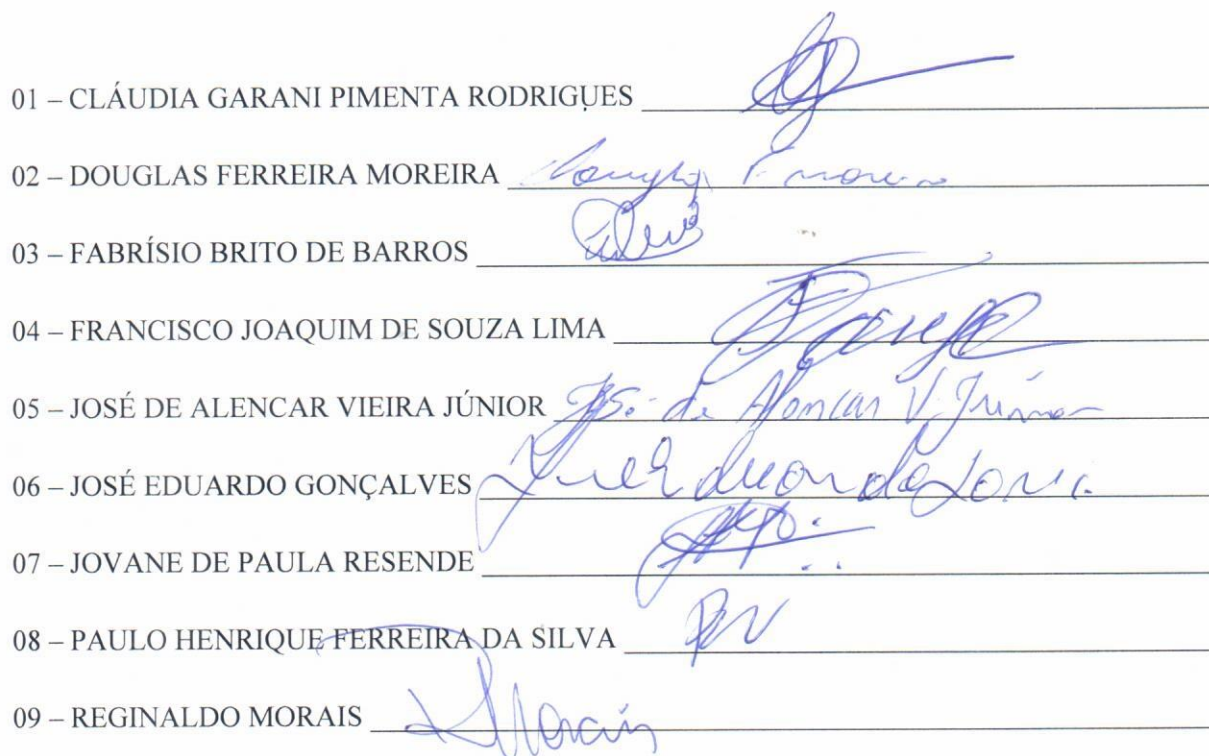 01 – CLÁUDIA GARANI PIMENTA RODRIGUES
02 – DOUGLAS FERREIRA MOREIRA
03 – FABRÍSIO BRITO DE BARROS
04 – FRANCISCO JOAQUIM DE SOUZA LIMA
05 – JOSÉ DE ALENCAR VIEIRA JÚNIOR de Alencar V. Júnior
06 – JOSÉ EDUARDO GONÇALVES
07 – JOVANE DE PAULA RESENDE
08 – PAULO HENRIQUE FERREIRA DA SILVA
09 – REGINALDO MORAIS Morais